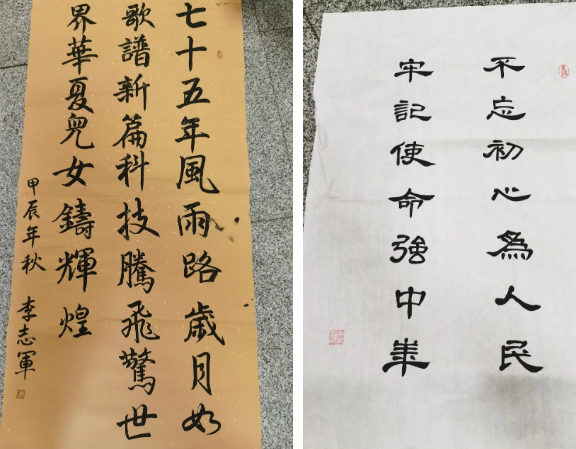 七十五年風雨路歲月如
歌譜新篇科技騰飛驚世
界華夏兒女鑄輝煌
甲辰年秋 李志軍
不忘初心為人民
牢記使命強中華